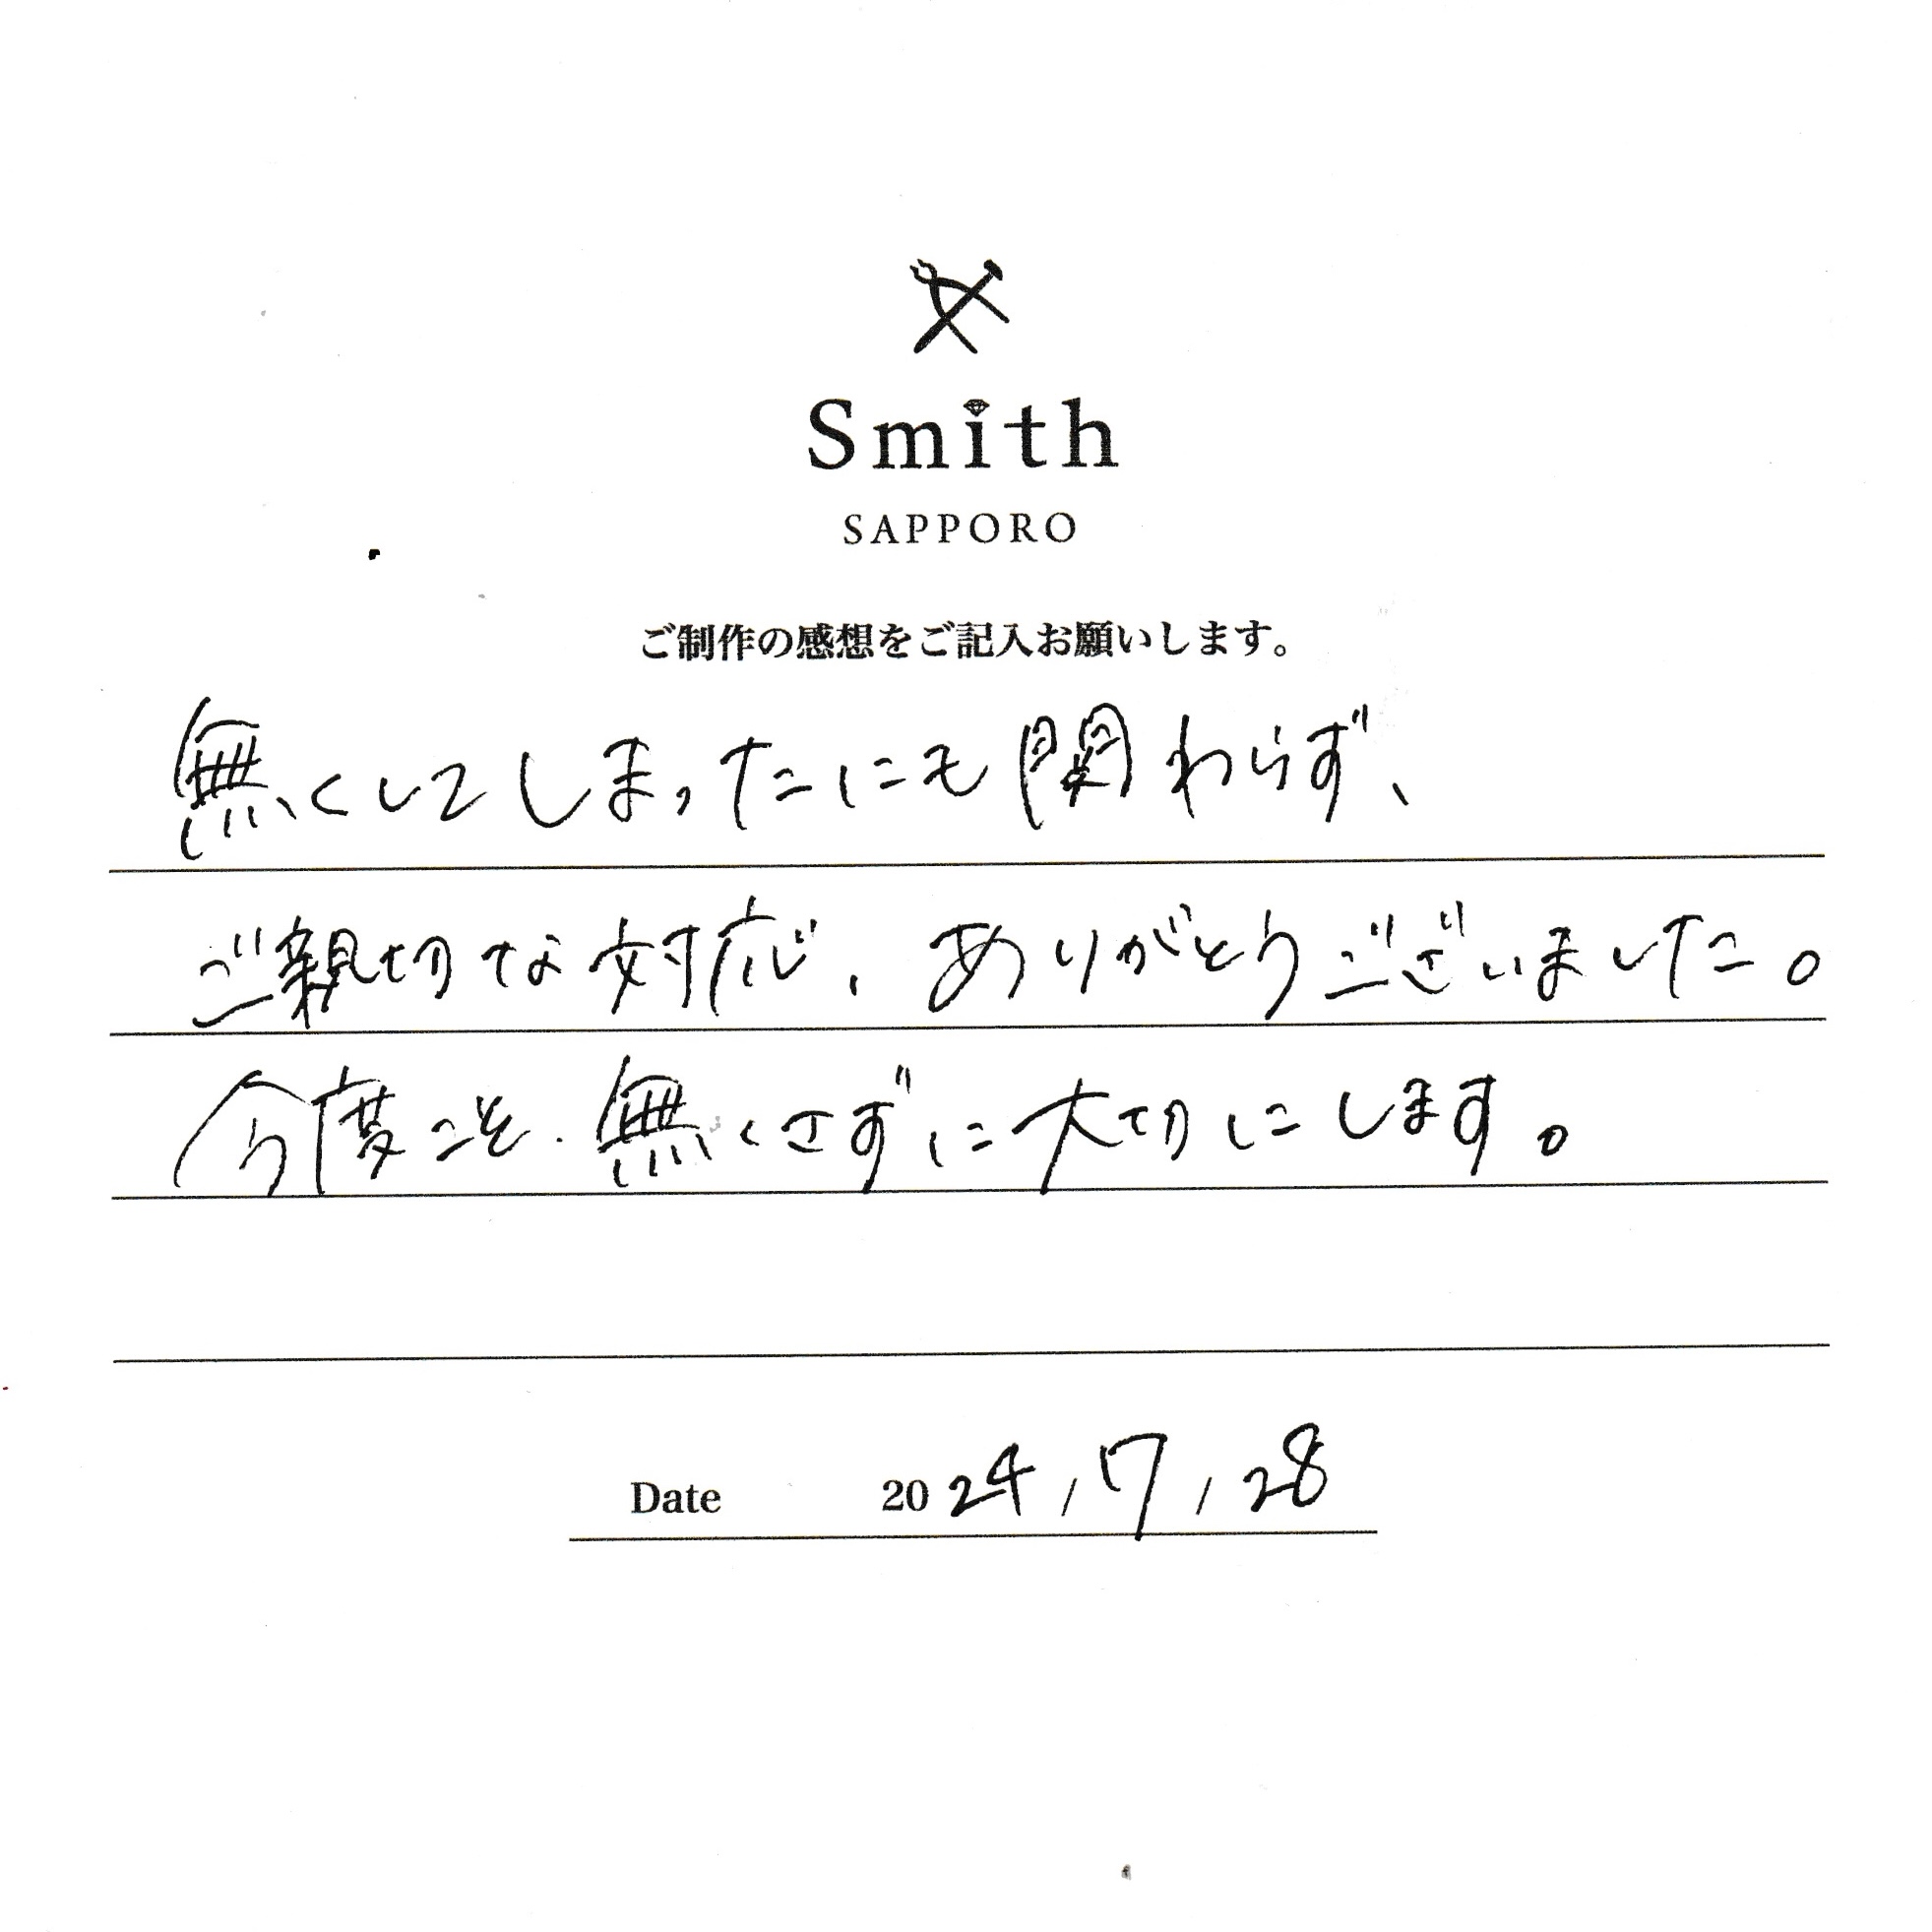 Smith
SAPPORO
ご制作の感想をご記入お願いします。
無くしてしまったにも関わらず、
ご親切な対応、ありがとうございました。
今度こそ、無くさずに大切にします。
Date 2024/7/28